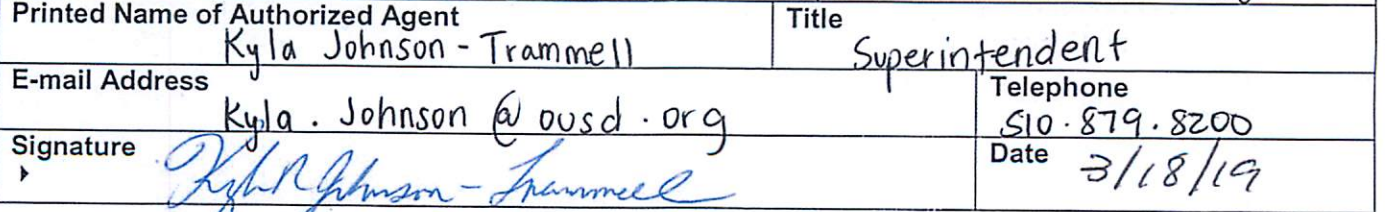 Printed Name of Authorized Agent
Kyla Johnson-Trammell
Title
Superintendent
E-mail Address
Kyla.Johnson@ousd.org
Telephone
510.879.8200
Signature
Kyla R Johnson-Trammell
Date
3/18/19